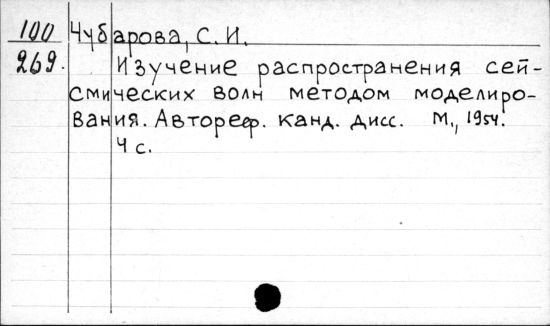 100 Чубарова, С. И.
269. Изучение распространения сей-
смических волн методом моделиро-
вания. Автореф. канд. дисс. М., 1954.
4 с.